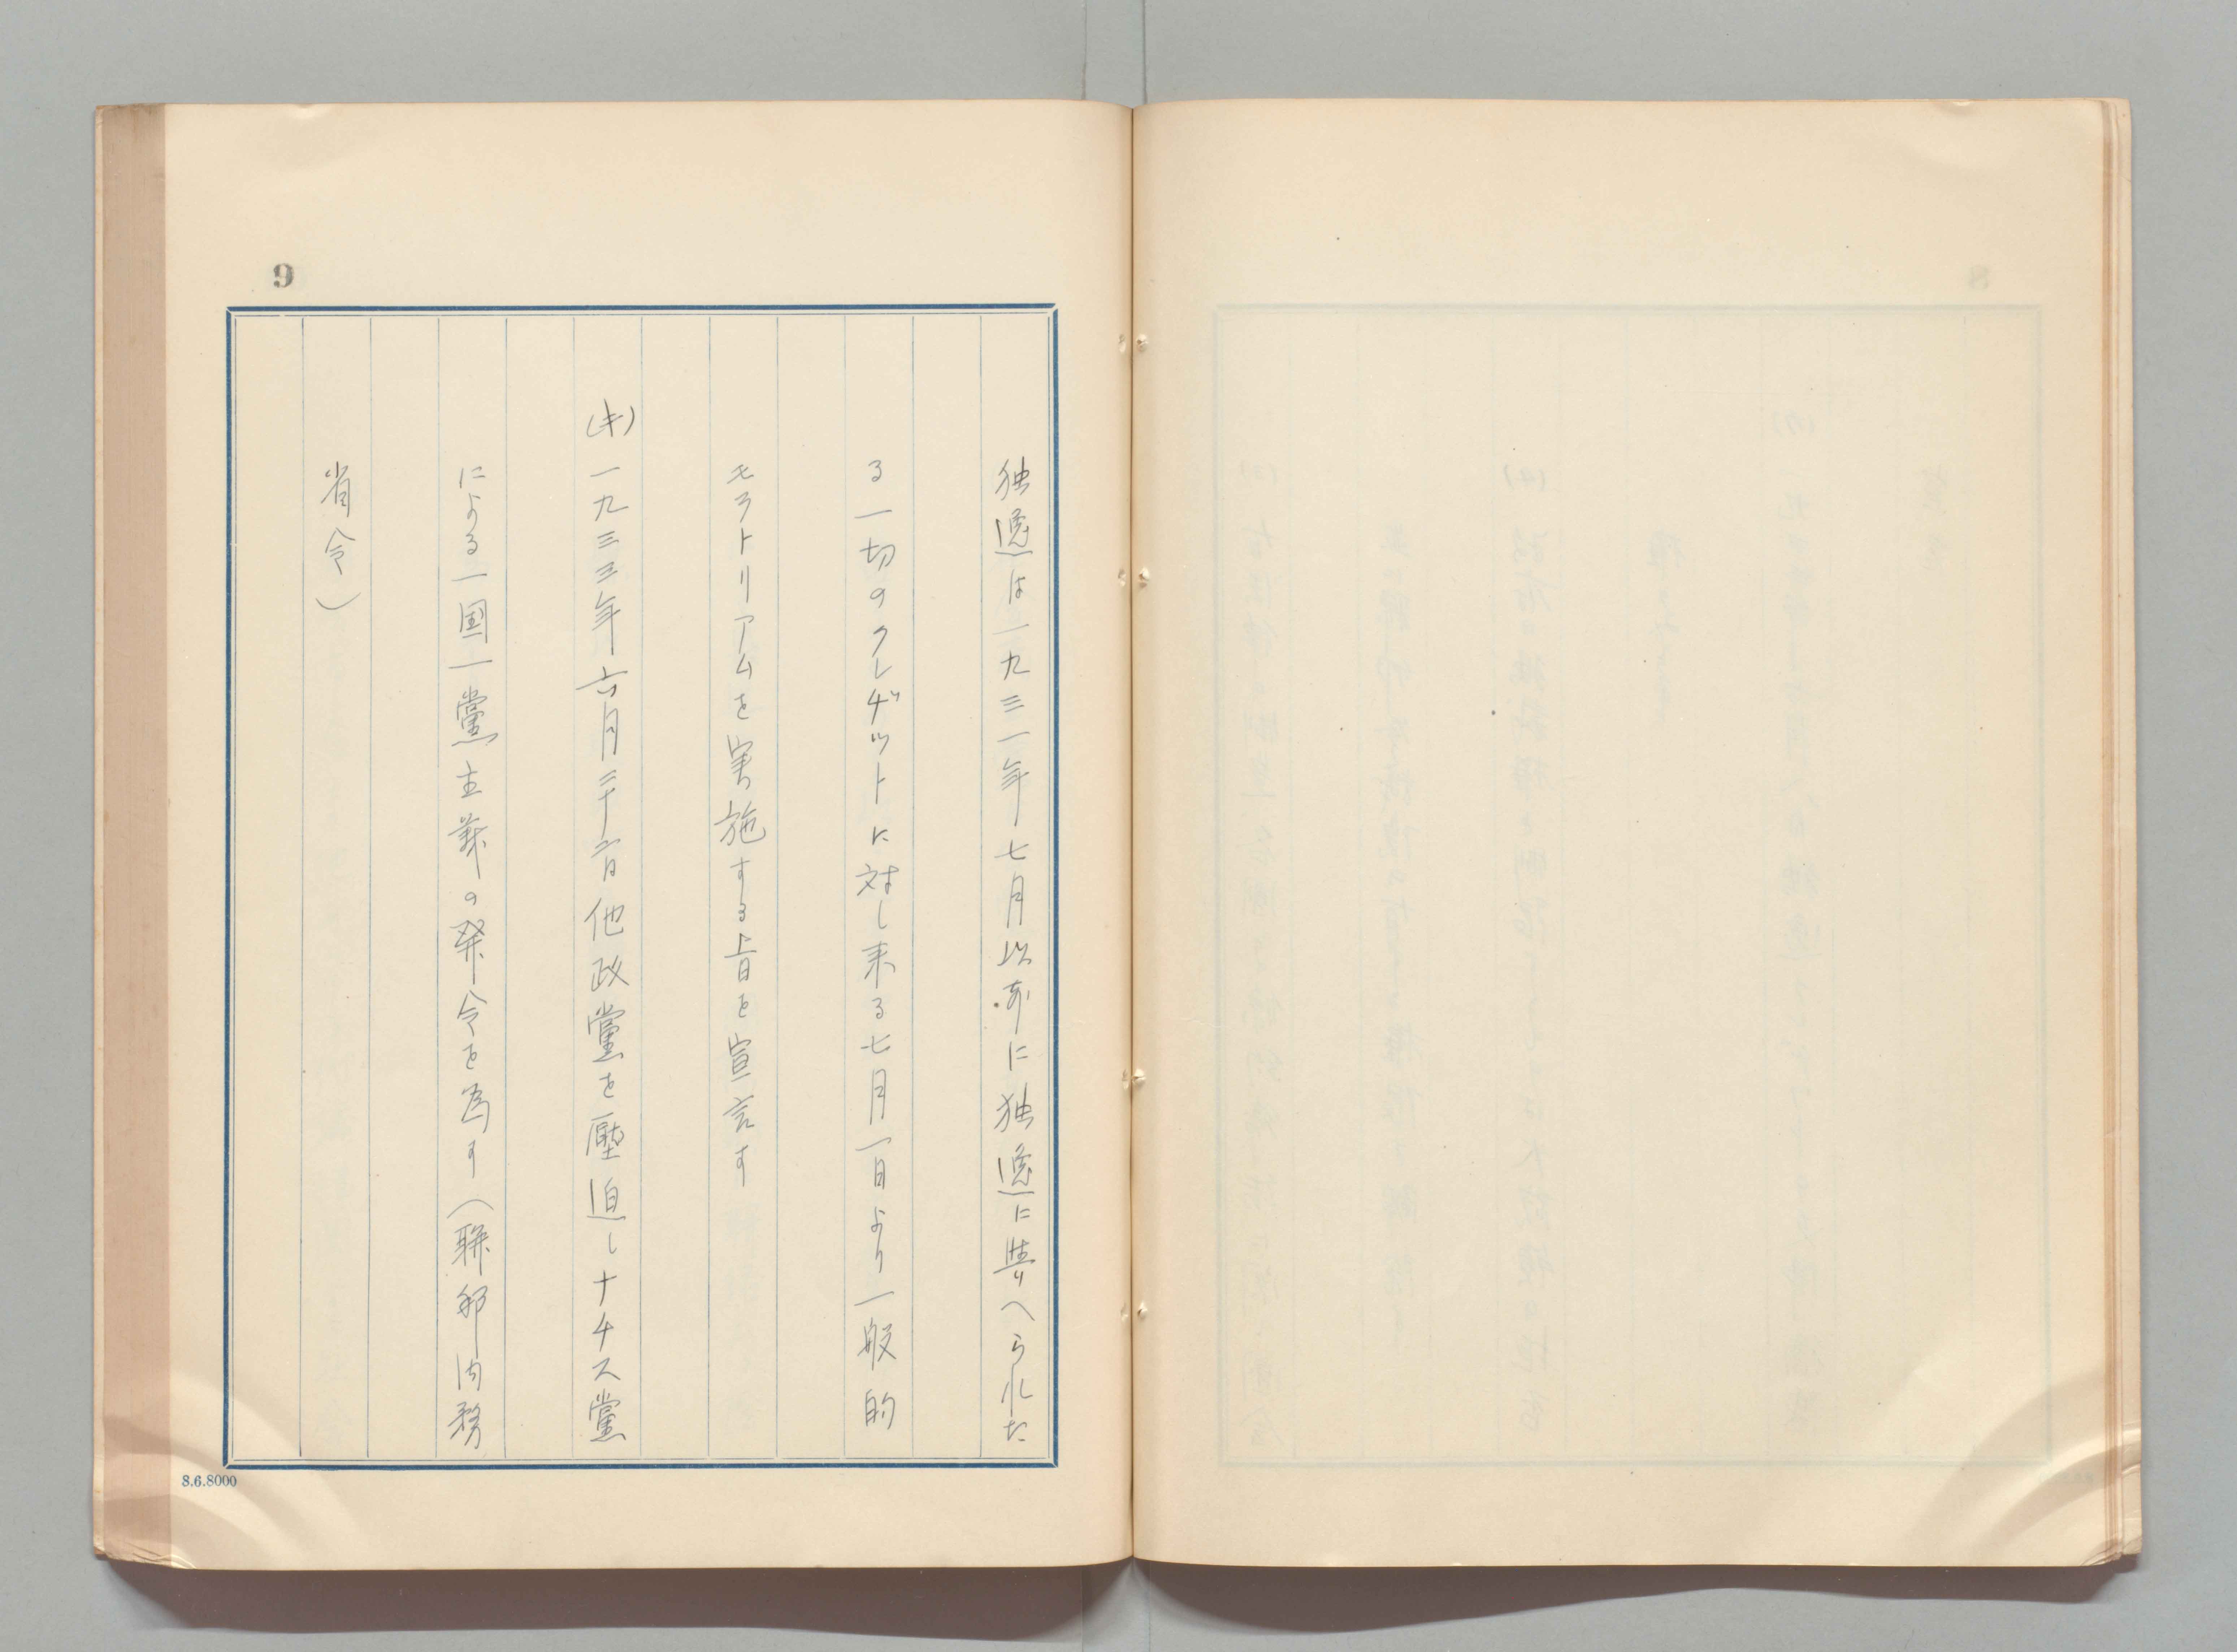 9
独逸は一九三一年七月以前に独逸に与へられた
る一切のクレヂットに対し来る七月一日より一般的
モラトリアムを実施する旨を宣言す
(キ)一九三三年六月二十六日他政黨を壓迫しナチス黨
による一国一黨主義の発令を為す(聯邦内務
省令)
8.6.8000